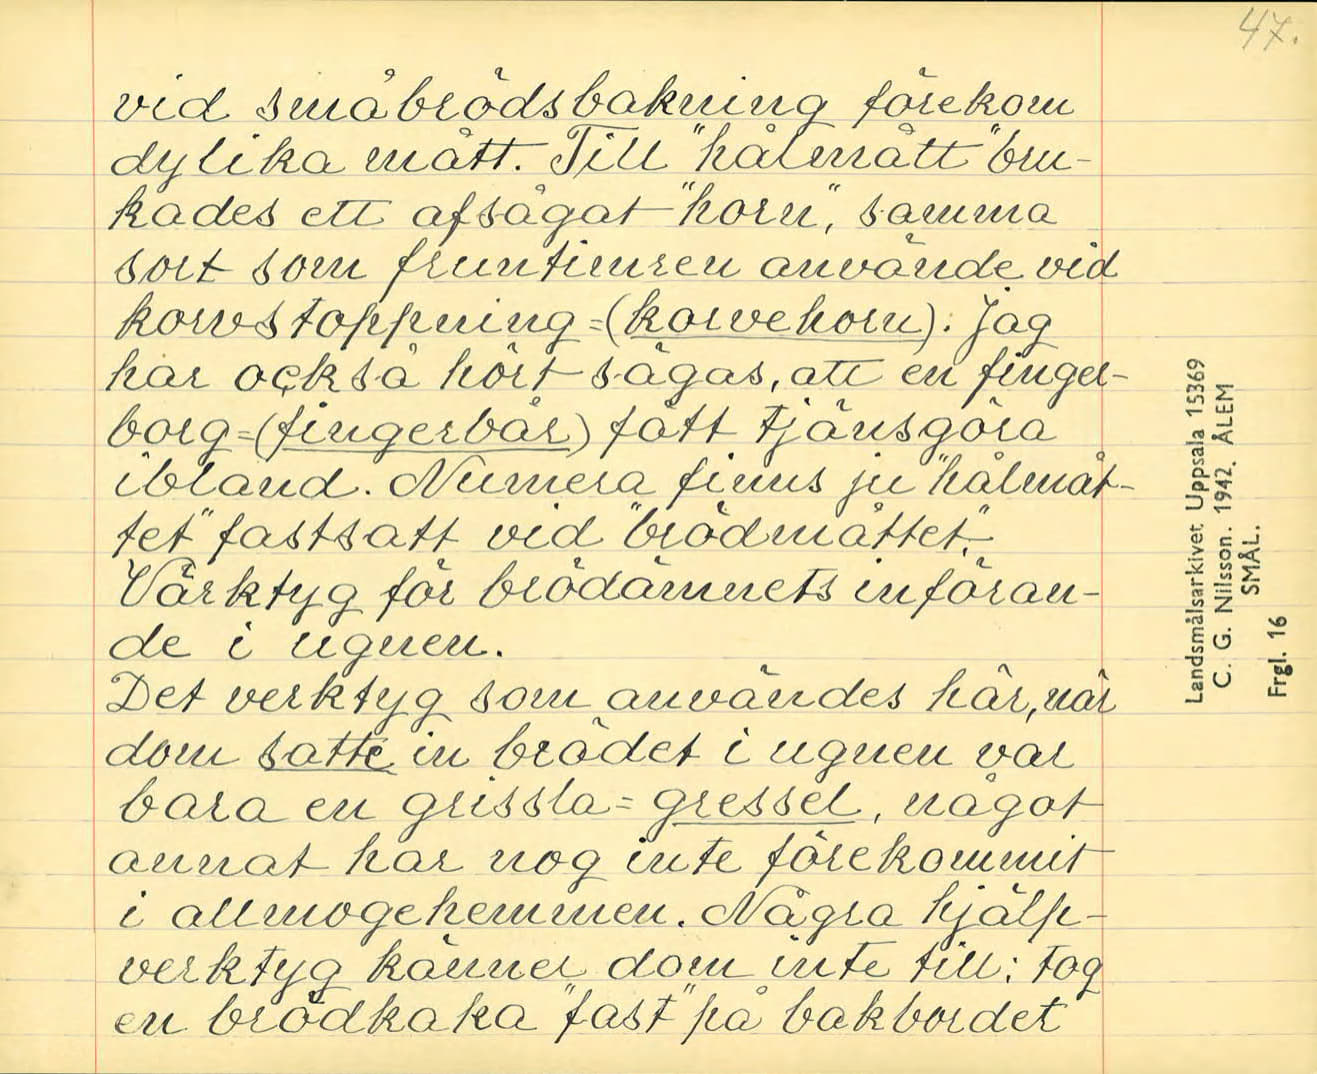 47.
vid småbrödsbakning förekom
dylika mått. Till "hålmått" bru-
kades ett afsågat "horn", samma
sort som fruntimren använde vid
korvstoppning=(korvehorn). Jag
har också hört sägas, att en finger-
borg=(fingerbår) fått tjänsgöra
ibland. Numera finns ju "hålmåt-
tet" fastsatt vid "brödmåttet".
Värktyg för brödämnets införan-
de i ugnen.
Det verktyg som användes här, när
dom satte in brödet i ugnen var
bara en grissla=gressel, något
annat har nog inte förekommit
i allmogehemmen. Några hjälp-
verktyg känner dom inte till: tog
en brödkaka "fast" på bakbordet
Landsmålsarkivet Uppsala 15369
C. G. Nilsson. 1942. ÅLEM
SMÅL.
Frgl. 16